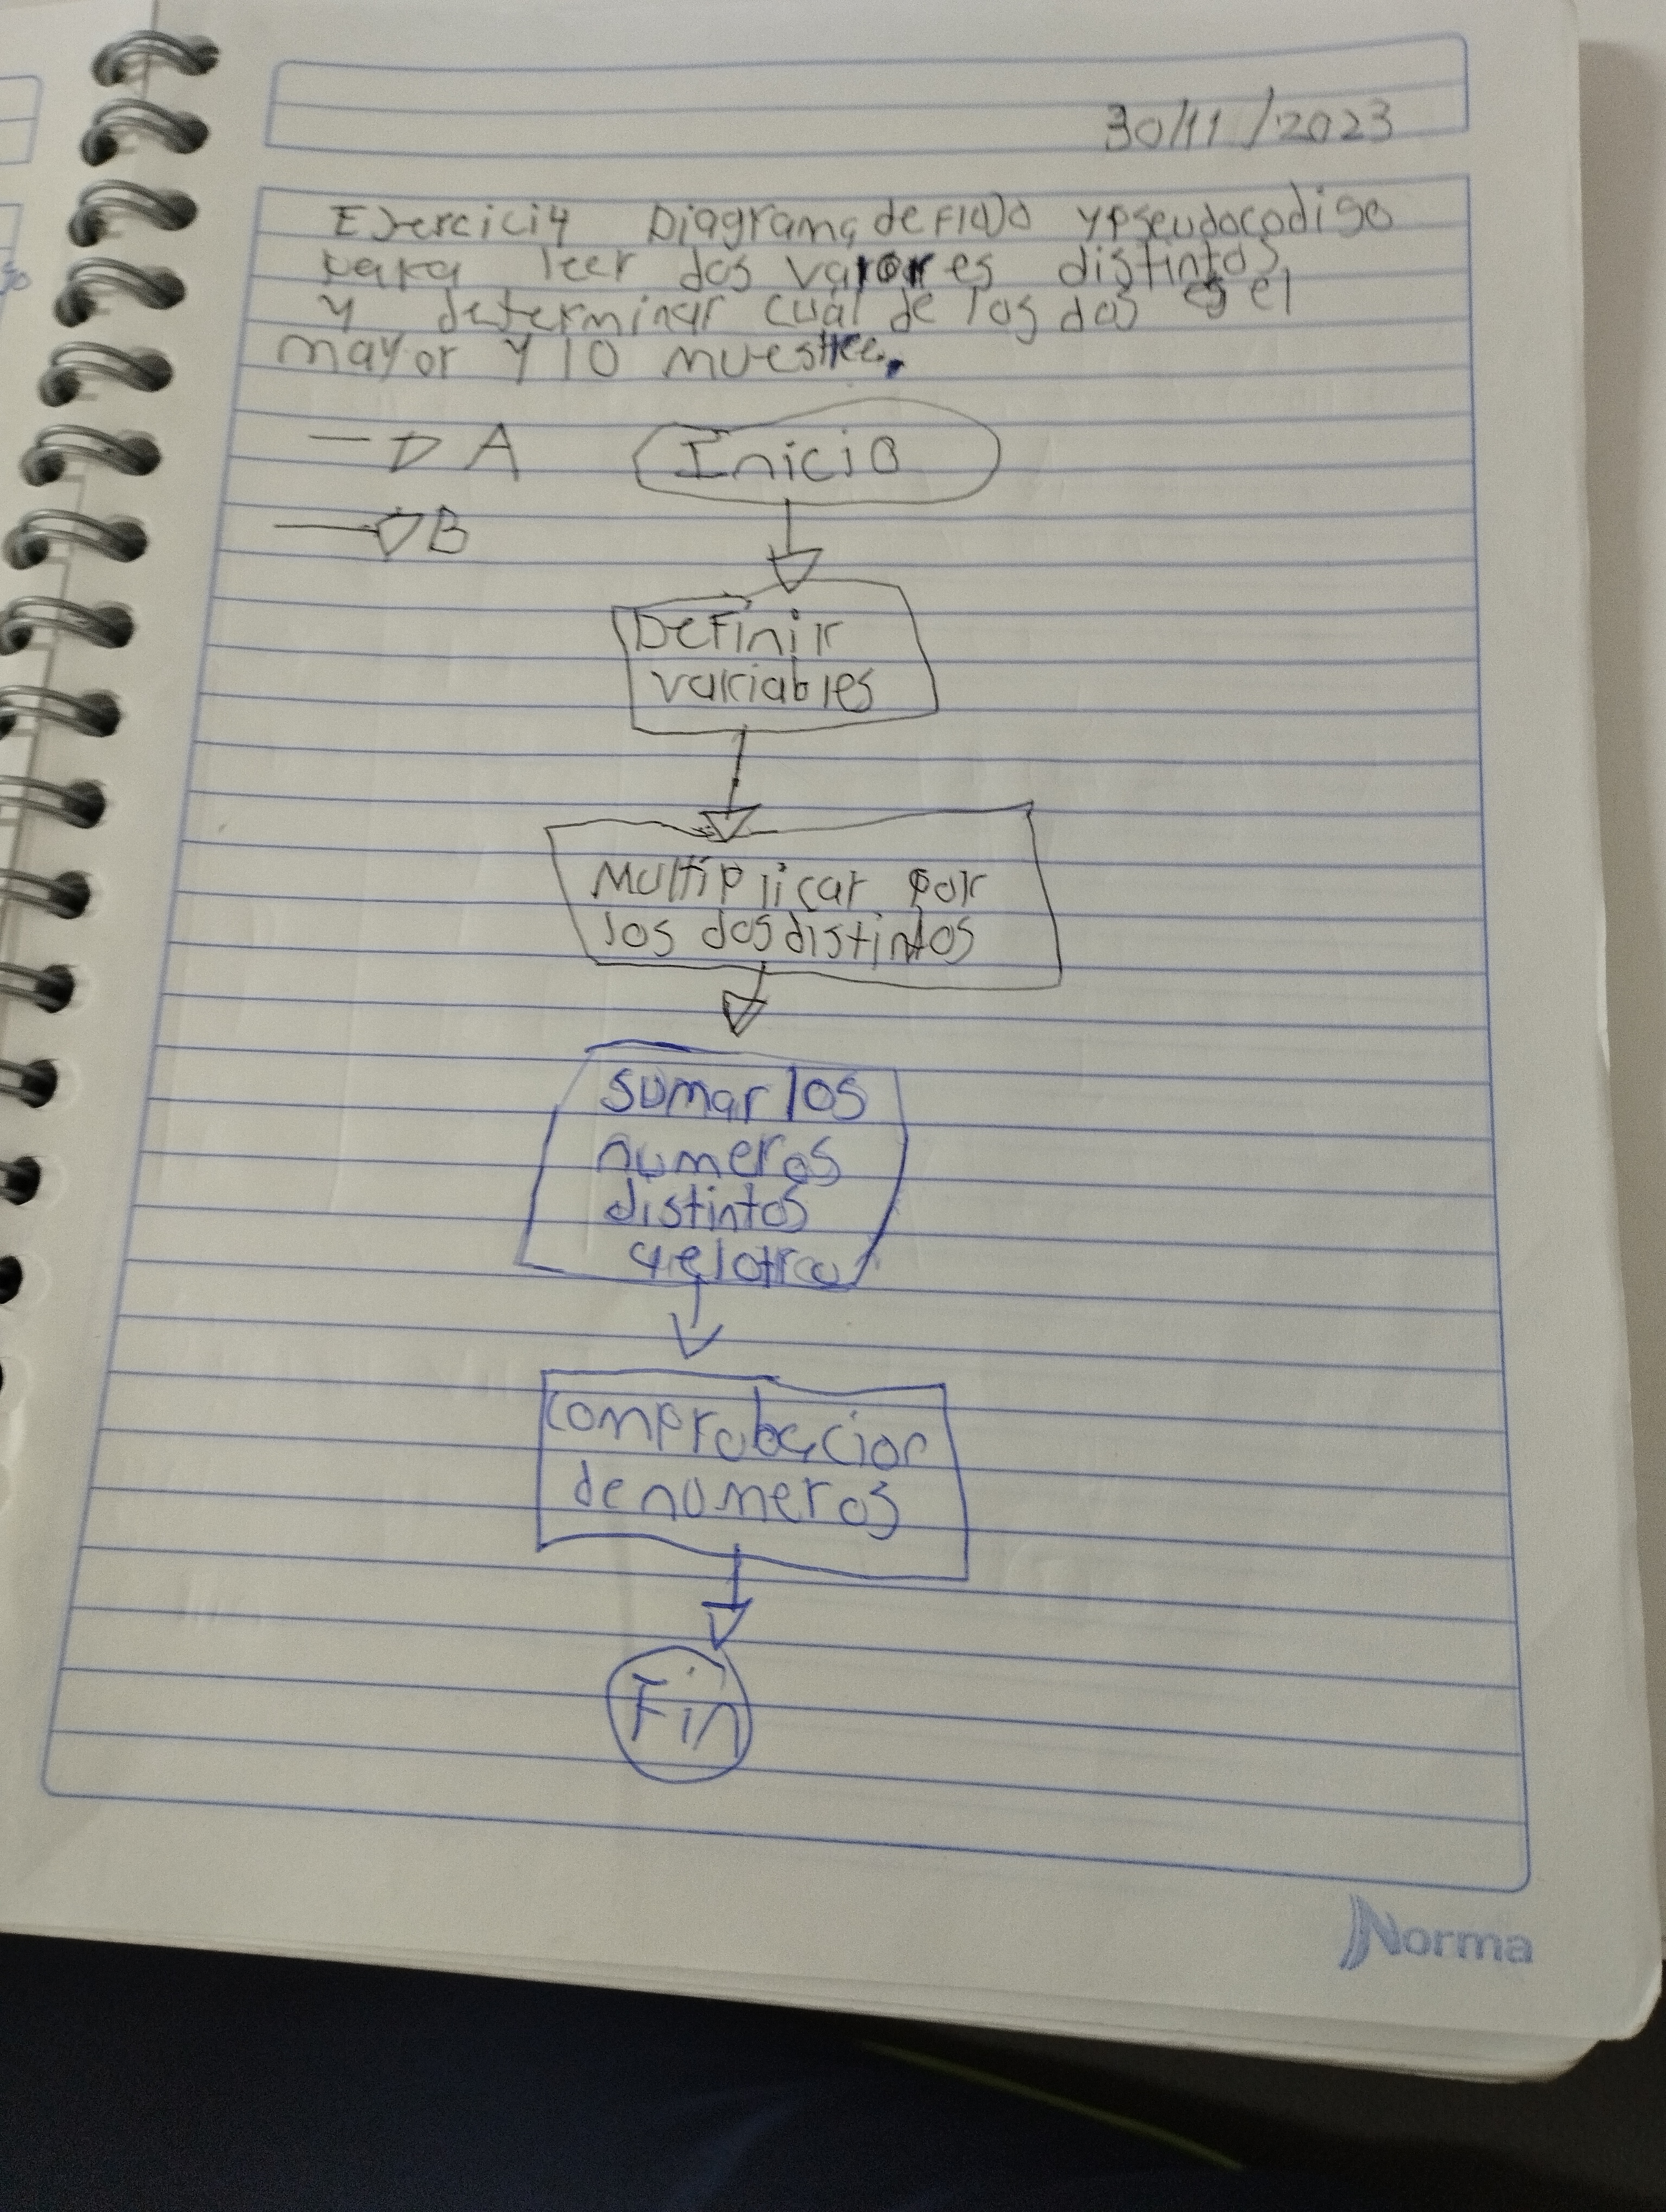 30/11/2023
Ejercici4 Diagrama de Flujo y pseudocodigo
para leer dos valores distintos
y determinar cual de los dos es el
mayor y lo muestre.
A
Inicio
B
Definir
variables
Multiplicar por
los dos distintos
sumar los
numeros
distintos
comprobacion
de numeros
Fin
Norma